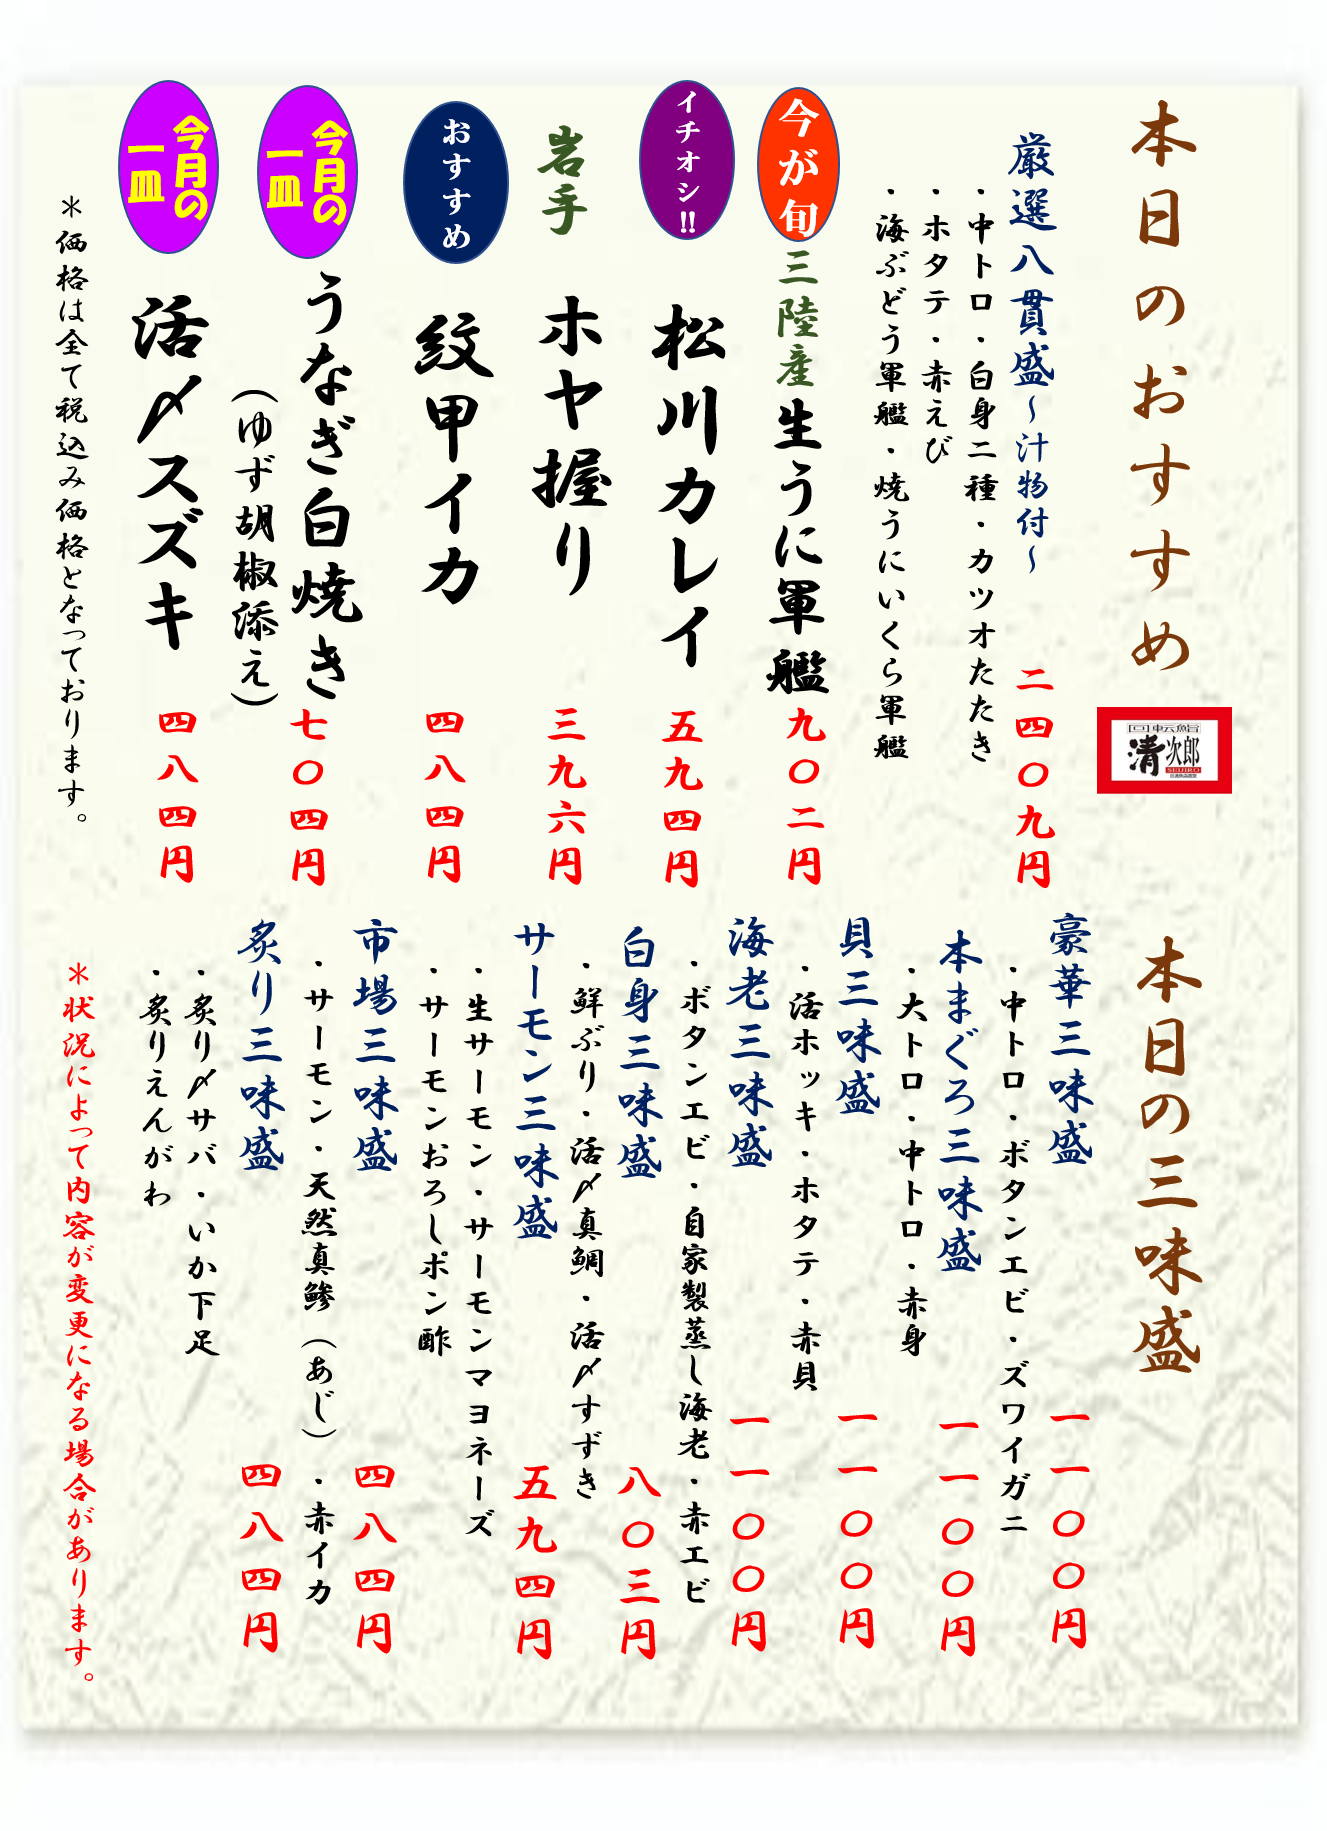 本日のおすすめ
回転鮨
清次郎
SEIJIRO
厳選八貫盛～汁物付～
二四〇九円
・中トロ・白身二種・カツオたたき
・ホタテ・赤えび
・海ぶどう軍艦・焼うにいくら軍艦
今が旬
三陸産生うに軍艦
九〇二円
イチオシ!!
松川カレイ
五九四円
岩手
ホヤ握り
三九六円
おすすめ
紋甲イカ
四八四円
今月の
一皿
うなぎ白焼き
(ゆず胡椒添え)
七〇四円
今月の
一皿
活〆スズキ
四八四円
＊価格は全て税込み価格となっております。
本日の三味盛
豪華三味盛
一一〇〇円
・中トロ・ボタンエビ・ズワイガニ
本まぐろ三味盛
一一〇〇円
・大トロ・中トロ・赤身
貝三味盛
一一〇〇円
・活ホッキ・ホタテ・赤貝
海老三味盛
一一〇〇円
・ボタンエビ・自家製蒸し海老・赤エビ
白身三味盛
八〇三円
・鮮ぶり・活〆真鯛・活〆すずき
サーモン三味盛
五九四円
・生サーモン・サーモンマヨネーズ
・サーモンおろしポン酢
市場三味盛
四八四円
・サーモン・天然真鯵（あじ）・赤イカ
炙り三味盛
四八四円
・炙り〆サバ・いか下足
・炙りえんがわ
＊状況によって内容が変更になる場合があります。